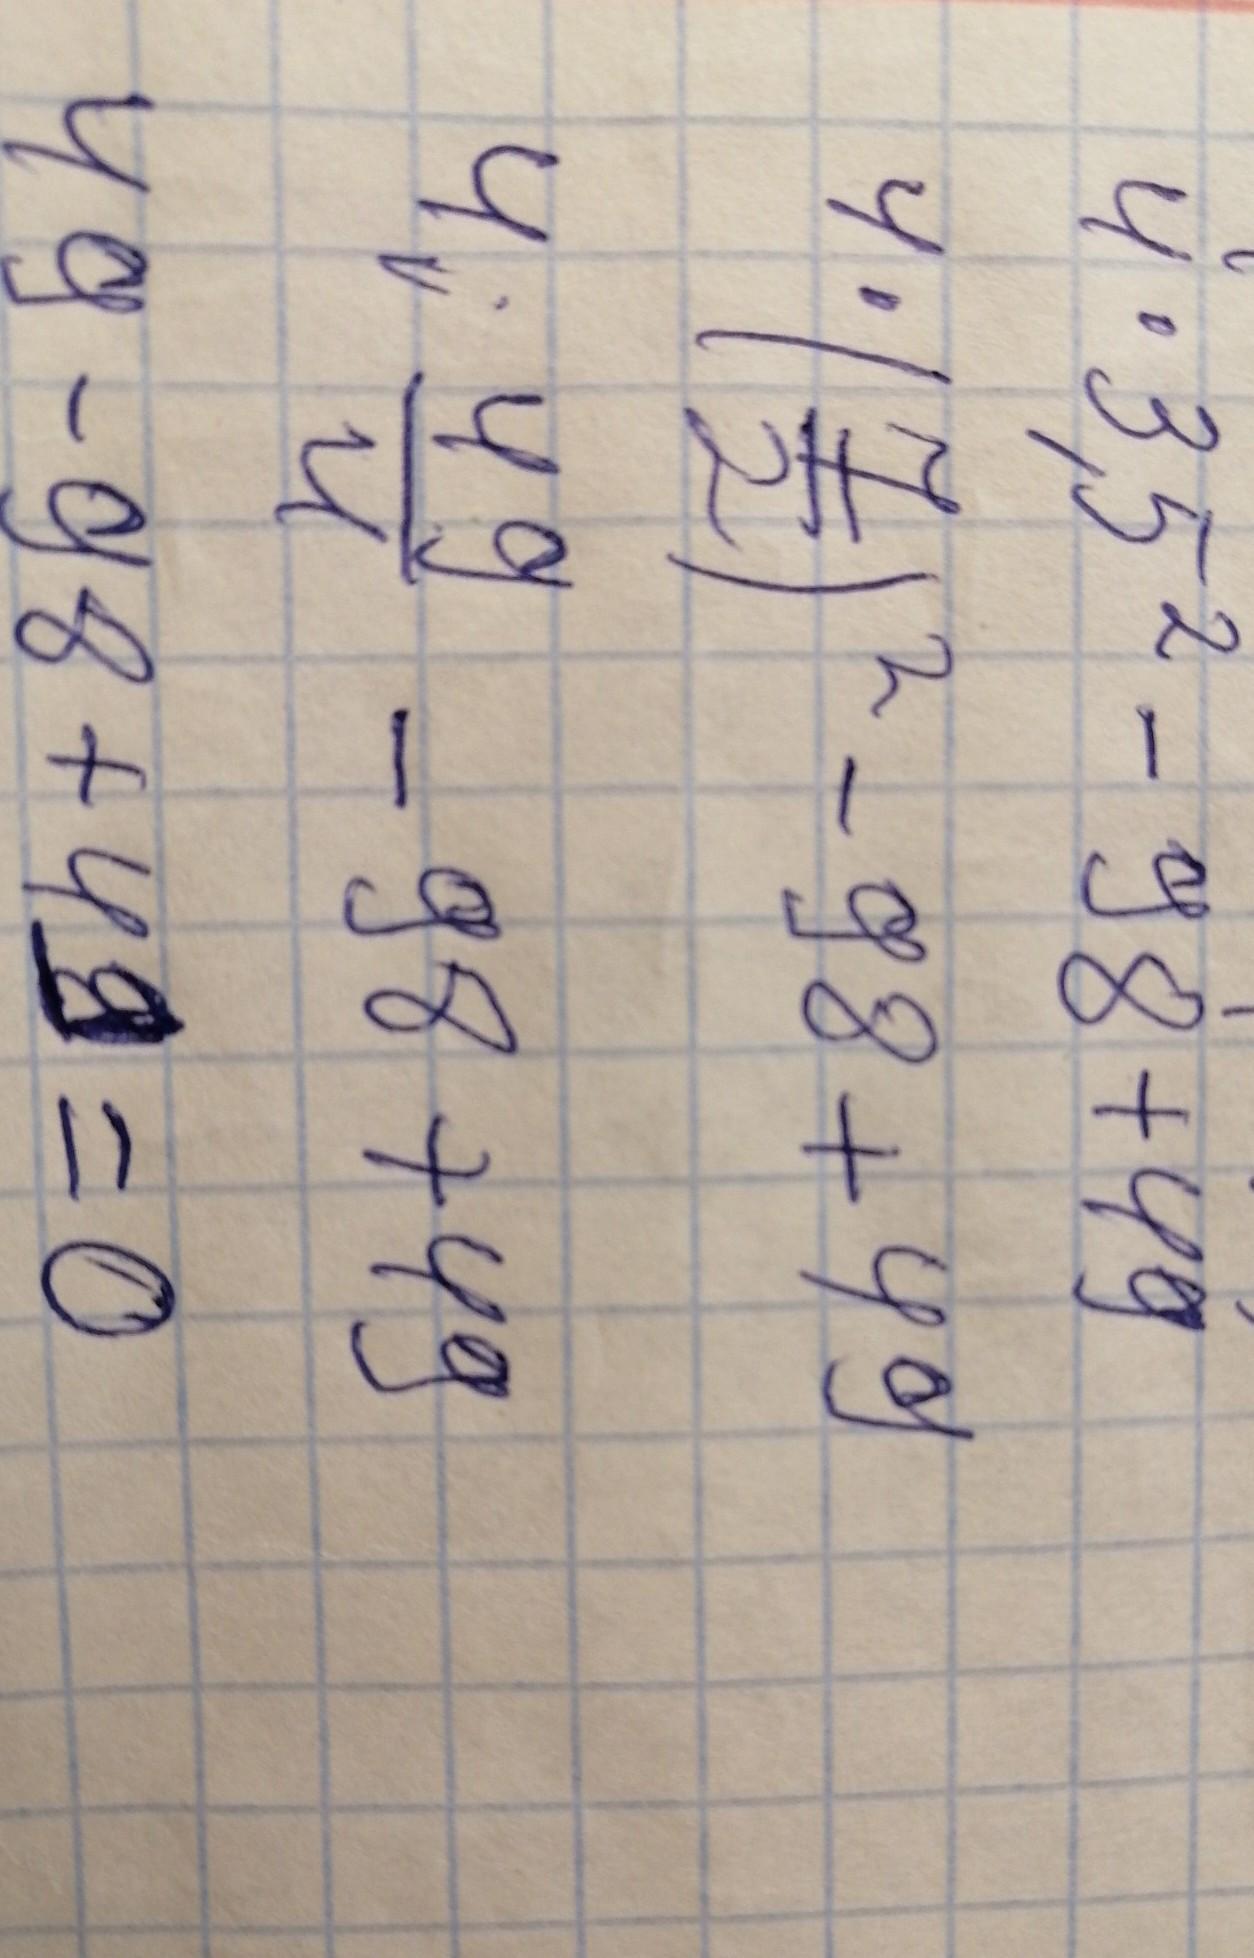 4 · 3,5² - 98 + 49
4 · (7/2)² - 98 + 49
4 · 49/4 - 98 + 49
49 - 98 + 49 = 0